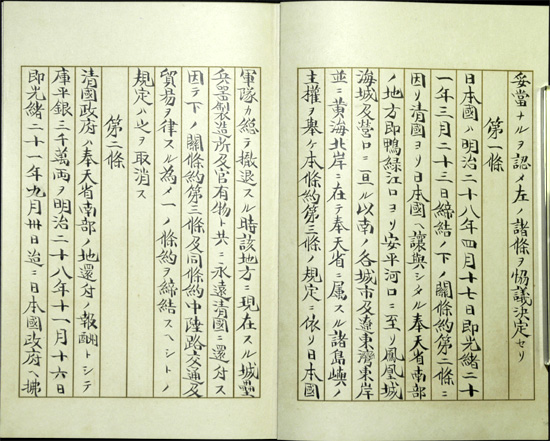 妥當ナルヲ認メ左ノ諸條ヲ協議決定セリ
第一條
日本國ハ明治二十八年四月十七日即光緒二十
一年三月二十三日締結ノ下ノ關條約第二條ニ
因リ清國ヨリ日本國ヘ讓與シタル奉天省南部
ノ地方即鴨綠江口ヨリ安平河口ニ至リ鳳凰城
海城及營口ニ亘ル以南ノ各城市及遼東灣東岸
並ニ黃海北岸ニ在テ奉天省ニ属スル諸島嶼ノ
主權ヲ擧ケ本條約第三條ノ規定ニ依リ日本國
軍隊カ總テ撤退スル時該地方ニ現在スル城壘
兵器製造所及官有物ト共ニ永遠清國ニ還付ス
因テ下ノ關條約第三條及同條約中陸路交通及
貿易ヲ律スル為メ一ノ條約ヲ締結スヘシトノ
規定ハ之ヲ取消ス
第二條
清國政府ハ奉天省南部ノ地還付ノ報酬トシテ
庫平銀三千萬兩ヲ明治二十八年十一月十六日
即光緒二十一年九月卅日迠ニ日本國政府ヘ拂